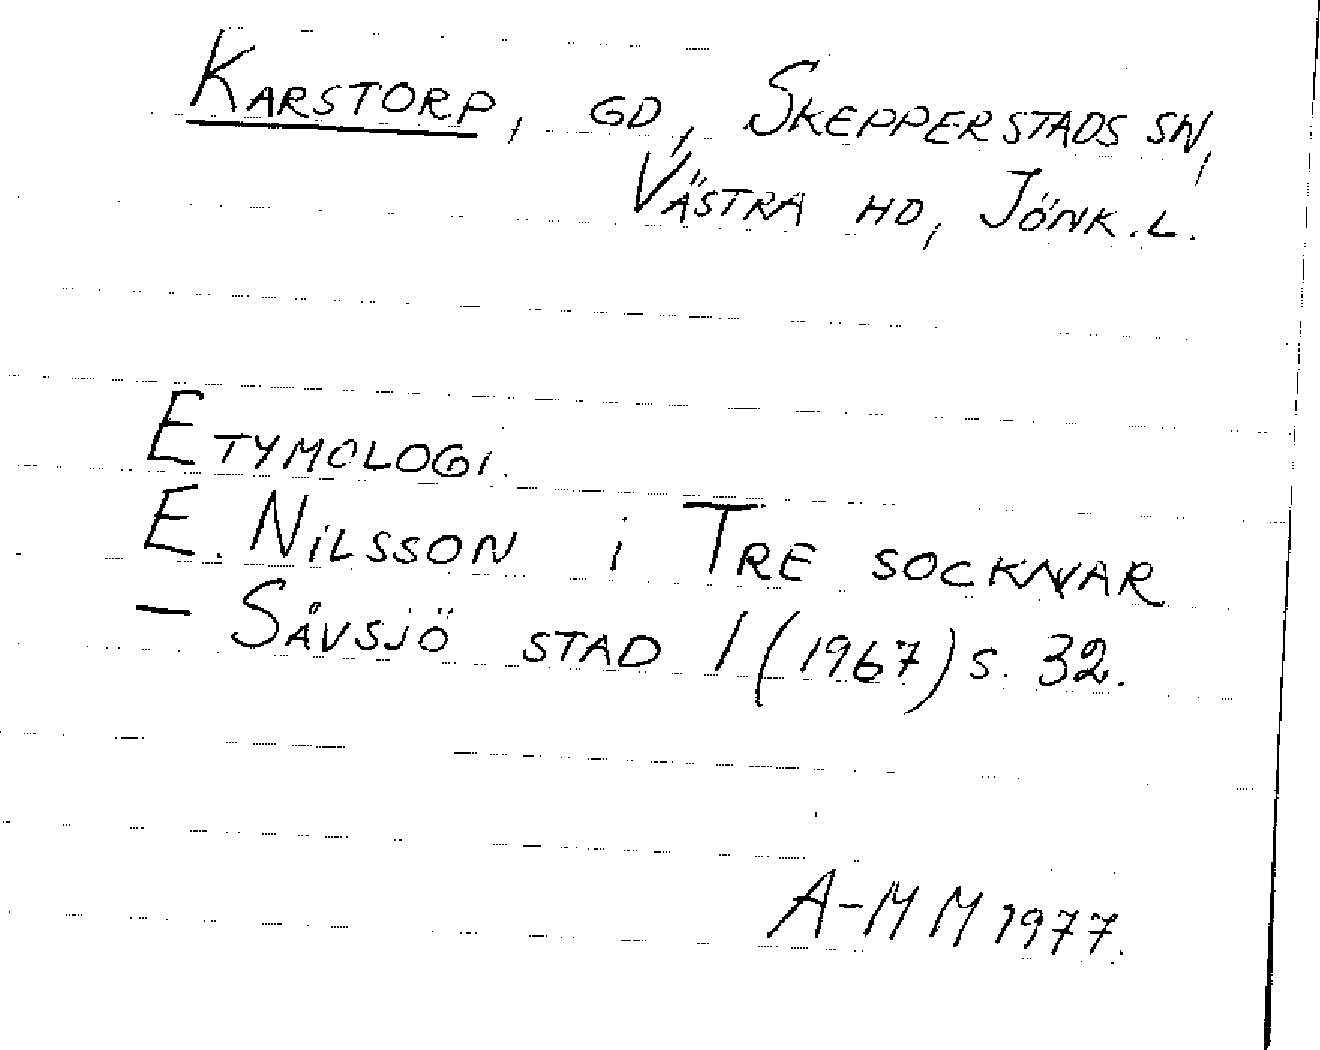 KARSTORP, GD, SKEPPERSTADS SN,
VÄSTRA HD, JÖNK.L.
ETYMOLOGI.
E. NILSSON i TRE SOCKNAR
– SÅVSJÖ STAD I (1967) S. 32.
A-MM 1977.